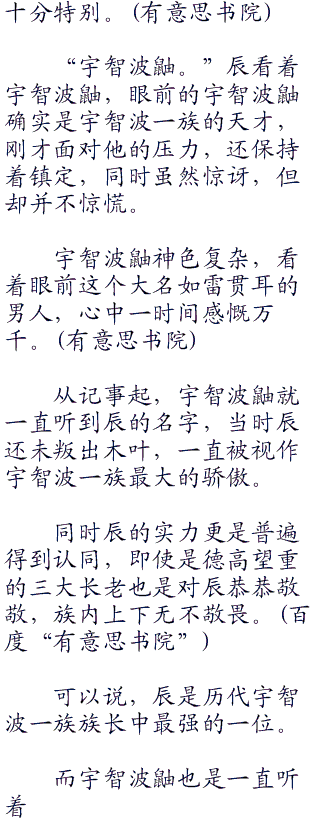 十分特别。（有意思书院）
“宇智波鼬。”辰看着
宇智波鼬，眼前的宇智波鼬
确实是宇智波一族的天才，
刚才面对他的压力，还保持
着镇定，同时虽然惊讶，但
却并不惊慌。
宇智波鼬神色复杂，看
着眼前这个大名如雷贯耳的
男人，心中一时间感慨万
千。（有意思书院）
从记事起，宇智波鼬就
一直听到辰的名字，当时辰
还未叛出木叶，一直被视作
宇智波一族最大的骄傲。
同时辰的实力更是普遍
得到认同，即使是德高望重
的三大长老也是对辰恭恭敬
敬，族内上下无不敬畏。（百
度“有意思书院”）
可以说，辰是历代宇智
波一族族长中最强的一位。
而宇智波鼬也是一直听
着